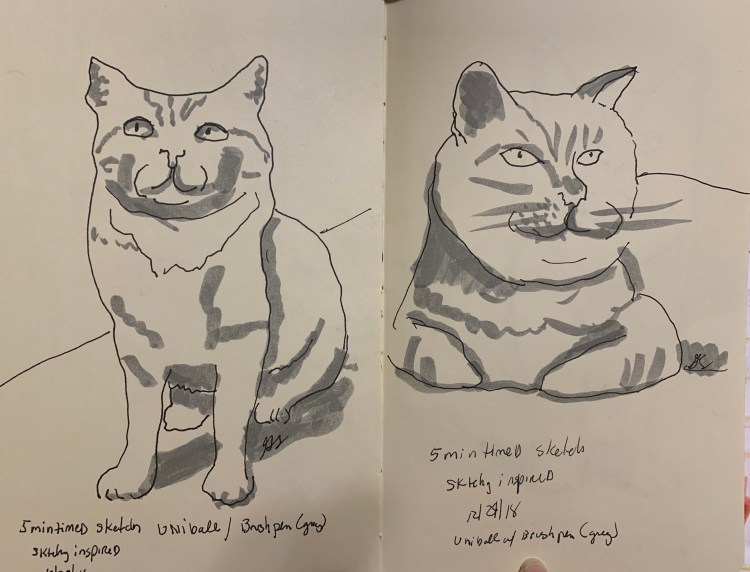 5min timed sketch Uniball / Brushpen (grey)
Sktchy inspired
5min timed sketch
Sktchy inspired
12/29/18
Uniball w/ Brushpen (grey)